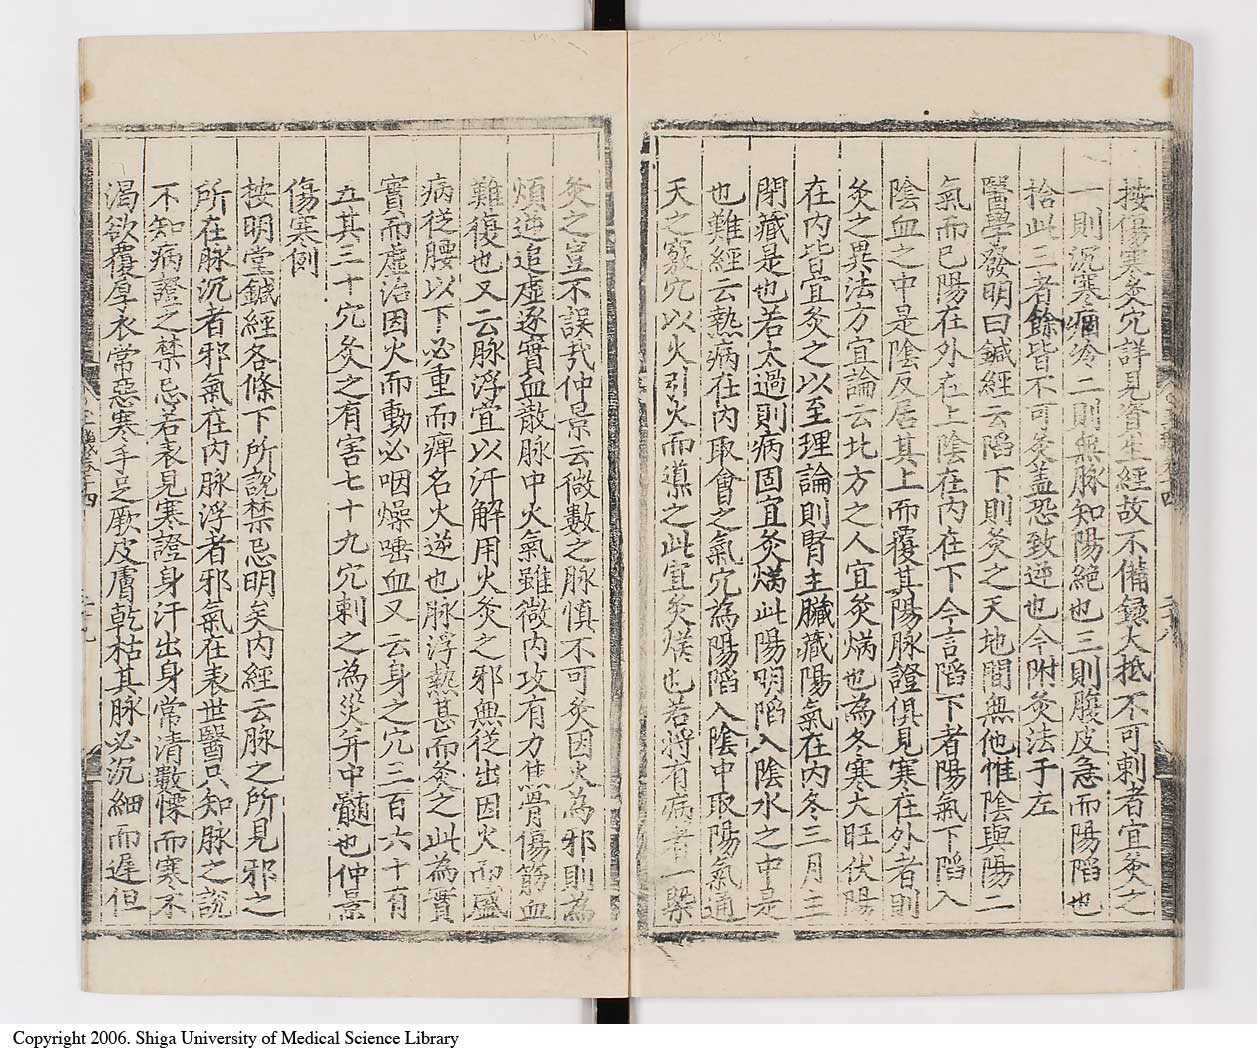 按傷寒灸穴詳見資生經故不備錄大抵不可刺者宜灸之
一則沉寒痼冷二則無脉知陽絶也三則腹皮急而陽陷也
捨此三者餘皆不可灸盖恐致逆也今附灸法于左
醫學發明曰鍼經云陷下則灸之天地間無他惟陰與陽二
氣而已陽在外在上陰在內在下今言陷下者陽氣下陷入
陰血之中是陰反居其上而覆其陽脉證俱見寒在外者則
灸之異法方宜論云北方之人宜灸焫也為冬寒大旺伏陽
在內皆宜灸之以至理論則腎主臟藏陽氣在內冬三月主
閉藏是也若太過則病固宜灸焫此陽明陷入陰水之中是
也難經云熱病在內取會之氣穴為陽陷入陰中取陽氣通
天之竅穴以火引火而導之此宜灸焫也若將有病者一槩
灸之豈不誤㢤仲景云微數之脉慎不可灸因火為邪則為
煩逆追虛逐實血散脉中火氣雖微內攻有力焦骨傷筋血
難復也又云脉浮宜以汗解用火灸之邪無従出因火而盛
病従腰以下必重而痺名火逆也脉浮熱甚而灸之此為實
實而虛治因火而動必咽燥唾血又云身之穴三百六十有
五其三十穴灸之有害七十九穴刺之為災并中髓也仲景
傷寒例
按明堂鍼經各條下所說禁忌明矣內經云脉之所見邪之
所在脉沉者邪氣在內脉浮者邪氣在表世醫只知脉之說
不知病證之禁忌若表見寒證身汗出身常清數慄而寒不
渴欲覆厚衣常惡寒手足厥皮膚乾枯其脉必沉細而遲但